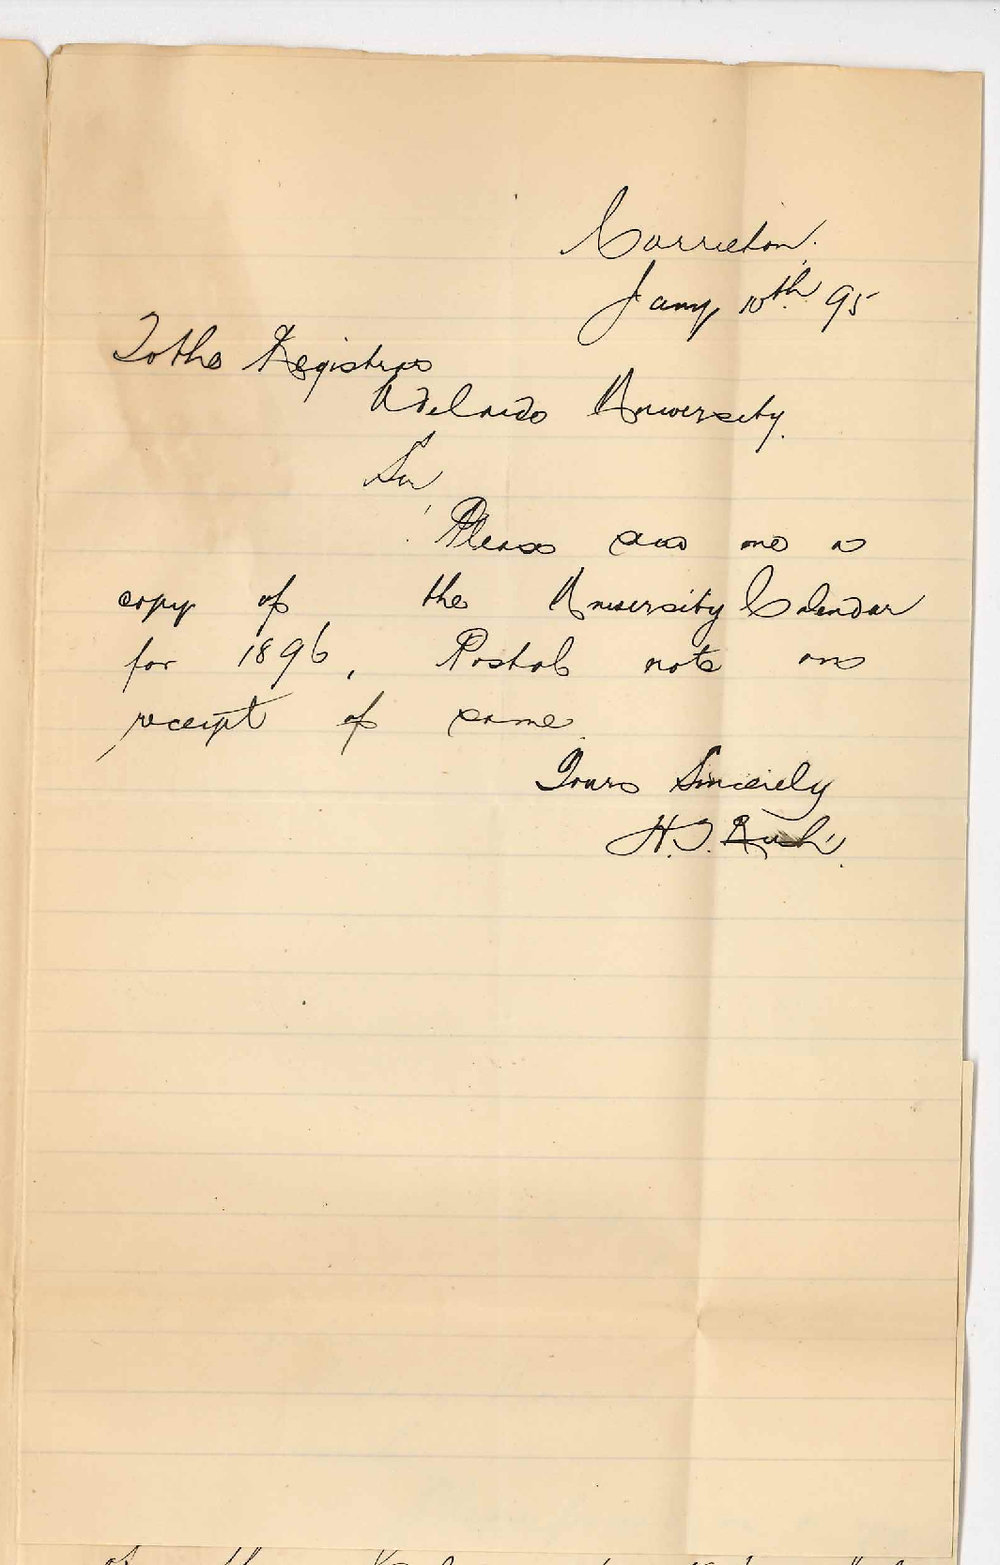 Carrieton.
Jany 10th 95
To the Registrar
Adelaide University.
Sir,
Please send me a
copy of the University Calendar
for 1896, Postal note on
receipt of same.
Yours Sincerely
H.J. Rush.
of the